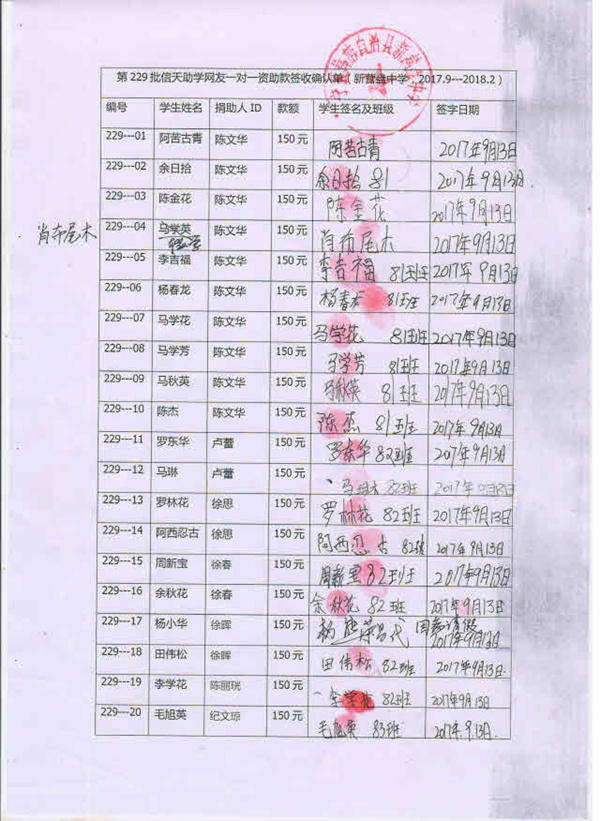 第229批信天助学网友一对一资助款签收确认单（新营盘中学，2017.9---2018.2）
编号 学生姓名 捐助人ID 款额 学生签名及班级 签字日期
229---01 阿苦古青 陈文华 150元 阿苦古青 2017年9月13日
229---02 余日拾 陈文华 150元 余日拾 81 2017年9月13日
229---03 陈金花 陈文华 150元 陈金花 2017年9月13日
肖布尾木 229---04 马学英 陈文华 150元 肖布尾木 2017年9月13日
229---05 李吉福 陈文华 150元 李吉福 81班 2017年9月13日
229---06 杨春龙 陈文华 150元 杨春龙 81班 2017年9月13日
229---07 马学花 陈文华 150元 马学花 81班 2017年9月13日
229---08 马学芳 陈文华 150元 马学芳 81班 2017年9月13日
229---09 马秋英 陈文华 150元 马秋英 81班 2017年9月13日
229---10 陈杰 陈文华 150元 陈杰 81班 2017年9月13日
229---11 罗东华 卢蕾 150元 罗东华 82班 2017年9月13日
229---12 马琳 卢蕾 150元 马琳 82班 2017年
229---13 罗林花 徐思 150元 罗林花 82班 2017年9月13日
229---14 阿西忍古 徐思 150元 阿西忍古 82班 2017年9月13日
229---15 周新宝 徐春 150元 周新宝 82班 2017年9月13日
229---16 余秋花 徐春 150元 余秋花 82班 2017年9月13日
229---17 杨小华 徐晖 150元 2017年9月13日
229---18 田伟松 徐晖 150元 田伟松 82班 2017年9月13日.
229---19 李学花 陈丽珖 150元 李学花 82班 2017年9月13日
229---20 毛旭英 纪文琼 150元 毛旭英 83班 2017年9月13日.